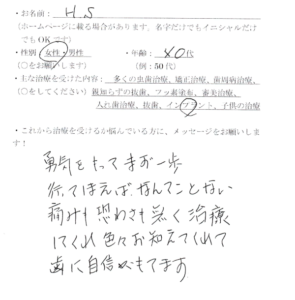 ・お名前： H.S
（ホームページに載る場合があります。名字だけでもイニシャルだけ
でもOKです）
・性別 女性・男性 ・年齢： 40代
（○をお願いします） （例：50代）
・主な治療を受けた内容： 多くの虫歯治療、矯正治療、歯周病治療、
（○をしてください） 親知らずの抜歯、フッ素塗布、審美治療、
入れ歯治療、抜歯、インプラント、子供の治療
・これから治療を受けるか悩んでいる方に、メッセージをお願いしま
す！
勇気をもってまず一歩
行ってしまえば、なんてことない
痛みも恐わさも無く治療
してくれ色々お知えてくれて
歯に自信がもてます